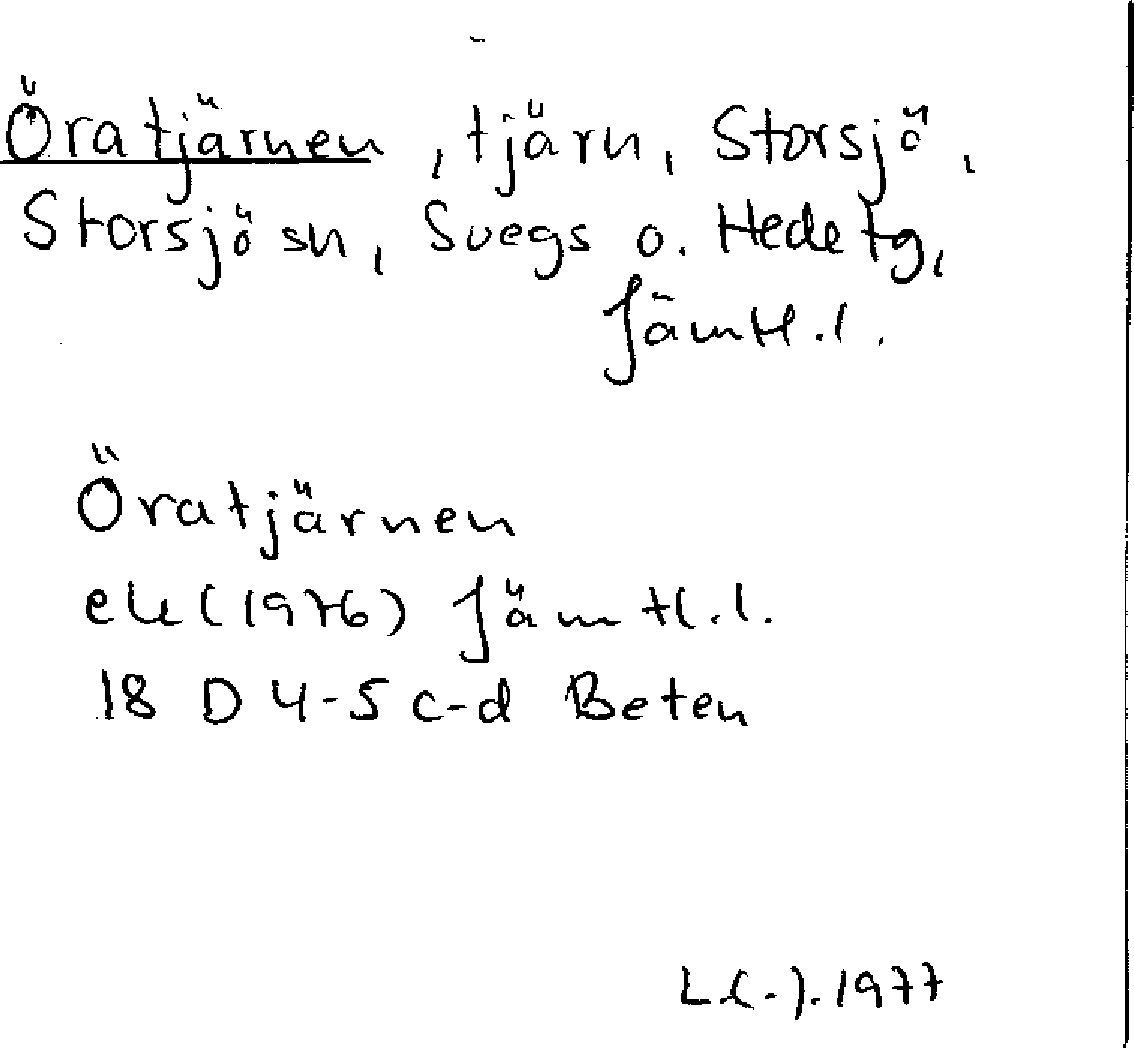 Öratjärnen, tjärn, Storsjö,
Storsjö sn, Svegs o. Hede tg,
Jämtl.l.
Öratjärnen
ek (1976) Jämtl.l.
18 D 4-5 c-d Beten
1977